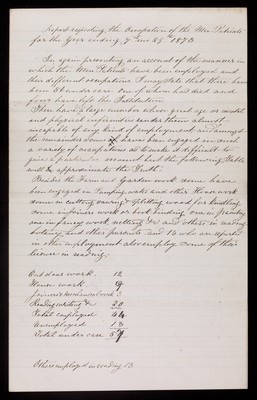 Report respecting the Occupation of the Men Patients
for the Year ending, 3 mo 25th 1873
In again presenting an account of the manner in
which the Men Patients have been employed and
their different occupations I may state that there have
been 56 under care one of whom had died and
four have left the Institution
There have a large number whose great age or mental
and physical infirmities render them almost
incapable of any kind of employment and amongst
the remainder some have been engaged in such
a variety of occupations as to make it difficult to
give a particular account but the following Table
will be approximate the Truth.
Besides the Farm and Garden work some have
been engaged in Pumping water and other House work
some in cutting sawing & splitting wood for kindling
some in joiners work or book binding, one in painting
one in fancy work netting &c and others in reading
botany, and other pursuits and 13 who are reported
in other employment also employ some of their
leisure in reading;
Out door work. 12
House work 9
Joiners & mechanical work 3
Reading writing &c 20
Total employed 44
Unemployed 13
Total under care 57
Others employed in reading 13